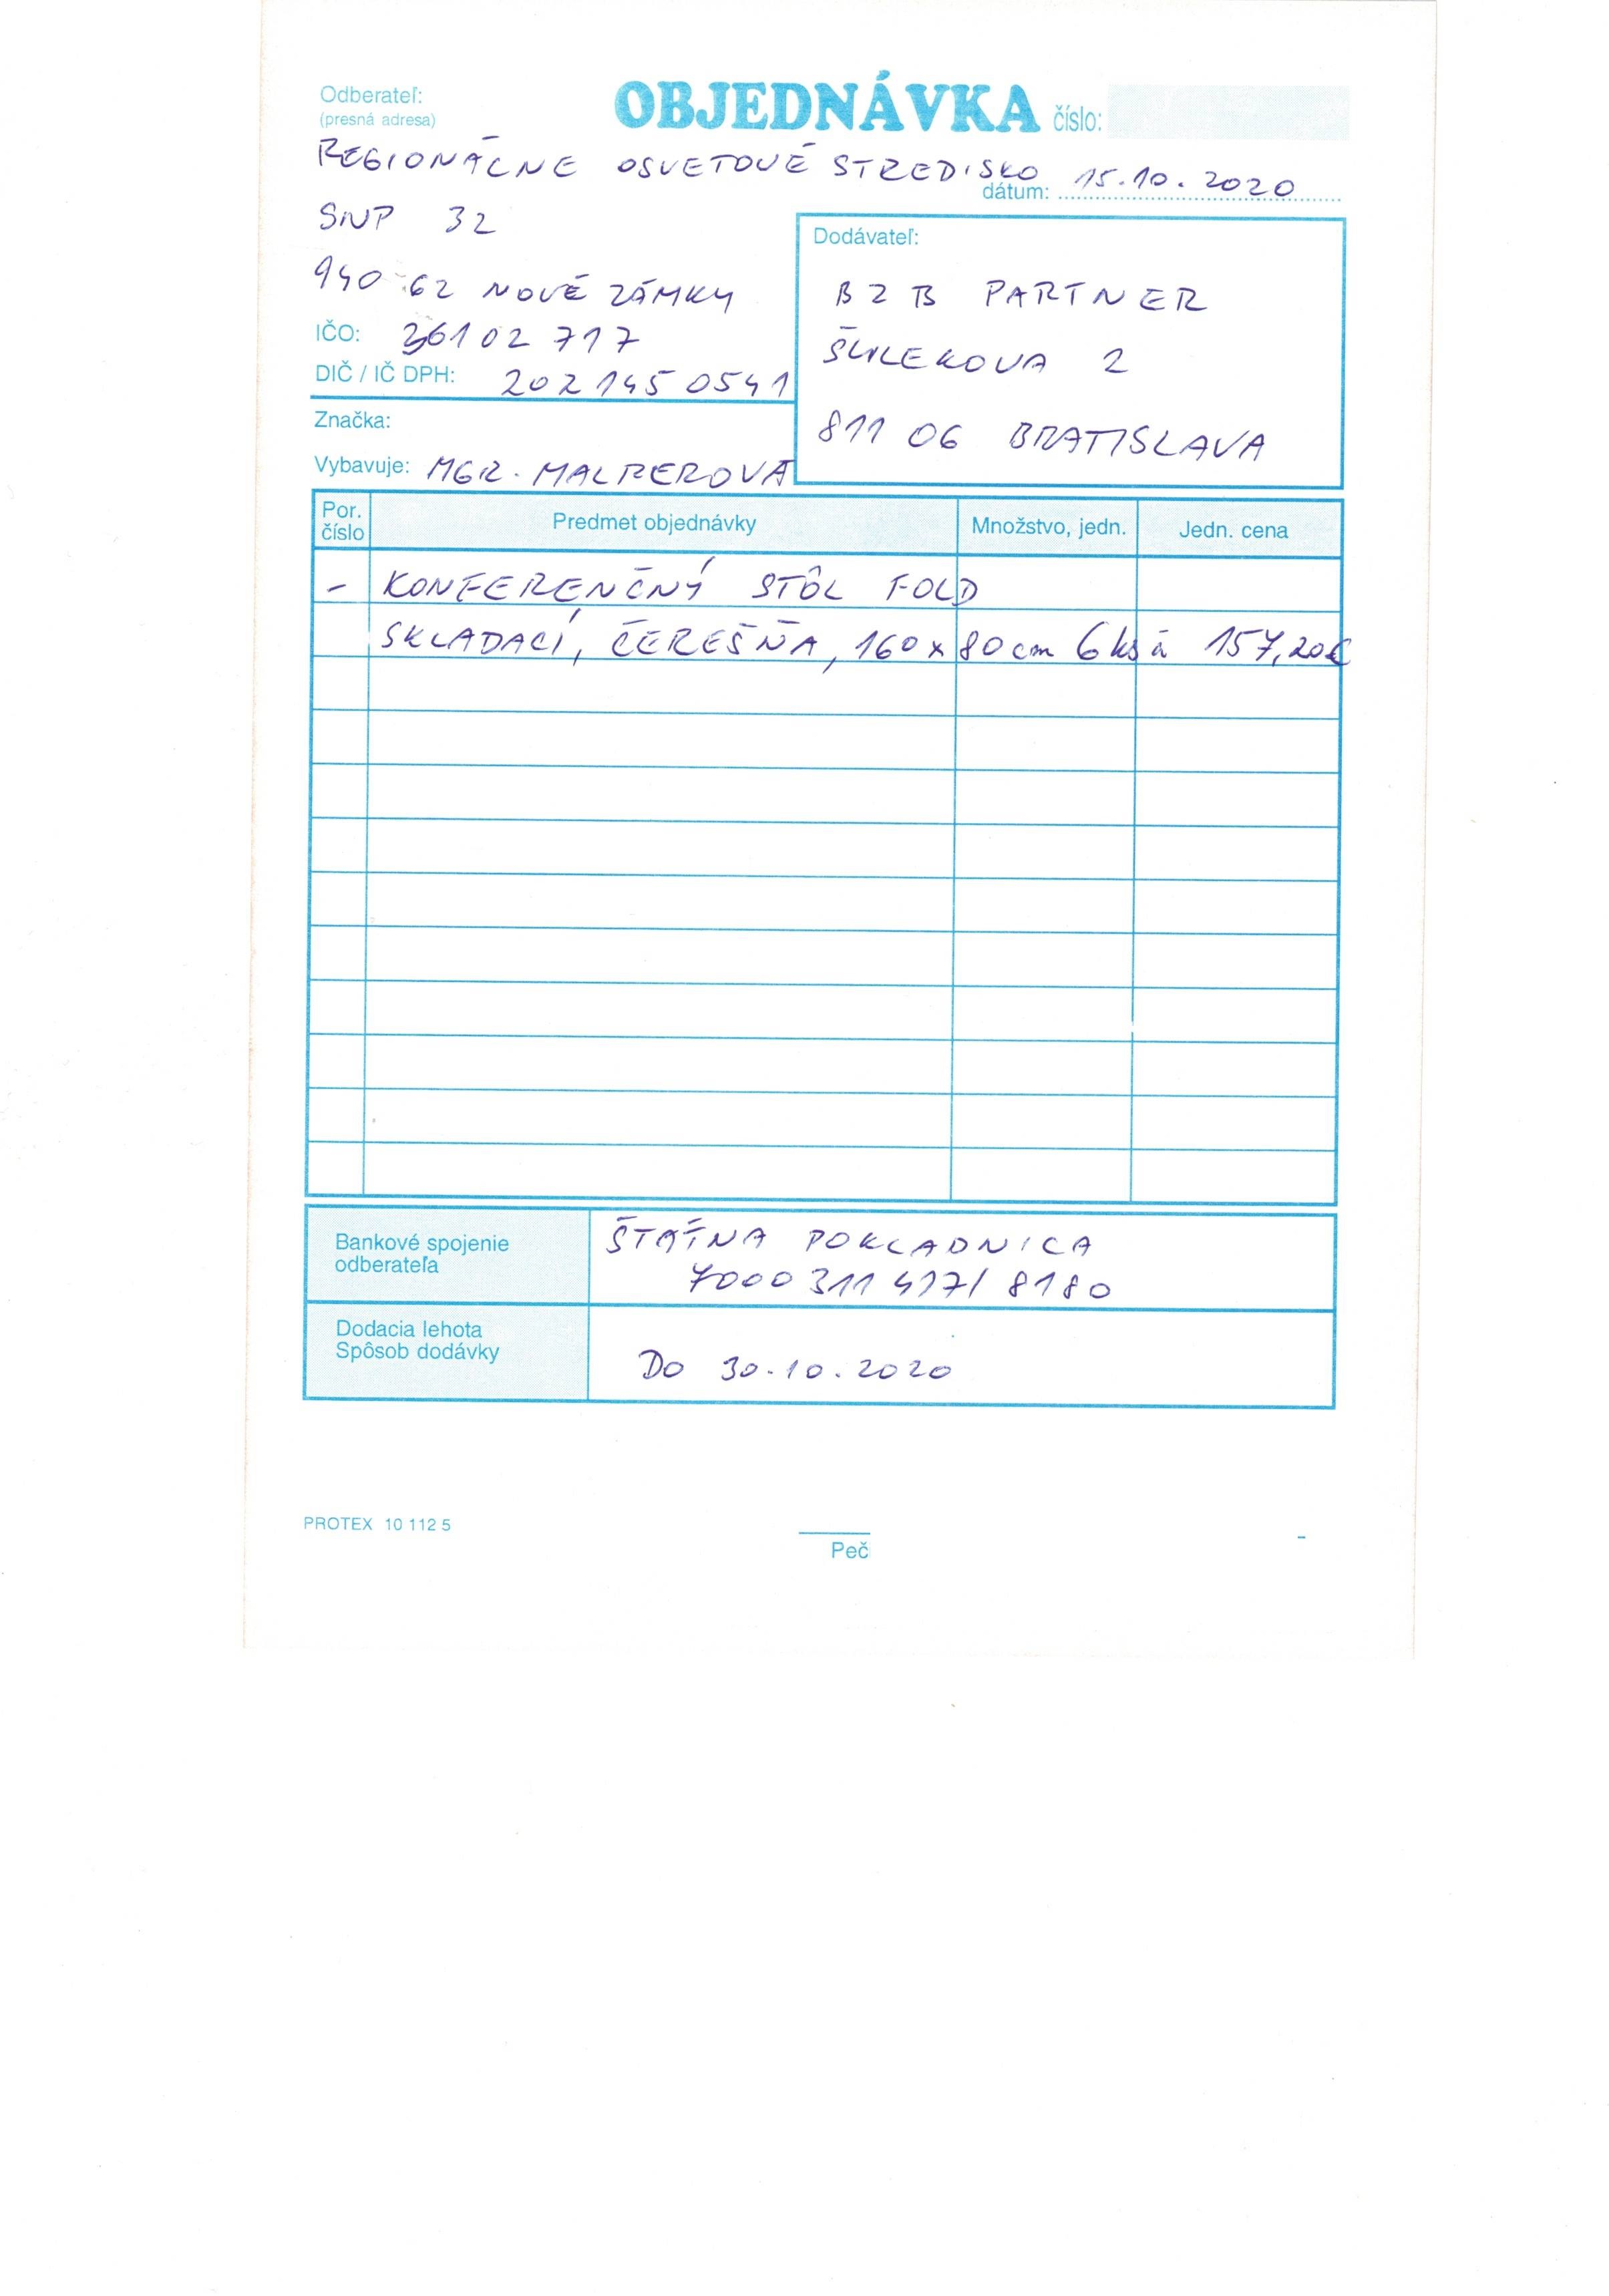 Odberateľ:
(presná adresa)
OBJEDNÁVKA číslo:
REGIONÁLNE OSVETOVÉ STREDISKO
dátum: 15.10.2020
SNP 32
940 62 NOVÉ ZÁMKY
IČO: 36102717
DIČ / IČ DPH: 202 145 0541
Značka:
Vybavuje: MGR. MALPEROVÁ
Dodávateľ:
B2B PARTNER
ŠULEKOVA 2
811 06 BRATISLAVA
Por. číslo
Predmet objednávky
Množstvo, jedn.
Jedn. cena
- KONFERENČNÝ STÔL FOLD
SKLADACÍ, ČEREŠŇA, 160x80cm 6ks á 157,20€
Bankové spojenie
odberateľa
ŠTÁTNA POKLADNICA
7000 311 417/ 8180
Dodacia lehota
Spôsob dodávky
DO 30.10.2020
PROTEX 10 112 5
Peč